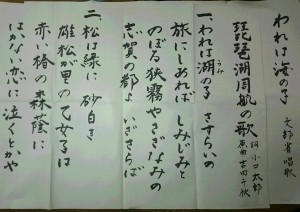 われは海の子 文部省唱歌
琵琶湖周航の歌 詞 小口太郎
原曲 吉田千秋
一、われは湖の子 さすらいの
旅にしあれば しみじみと
のぼる狭霧や さざなみの
志賀の都よ いざさらば
二、松は緑に 砂白き
雄松が里の 乙女子は
赤い椿の 森蔭に
はかない恋に 泣くとかや